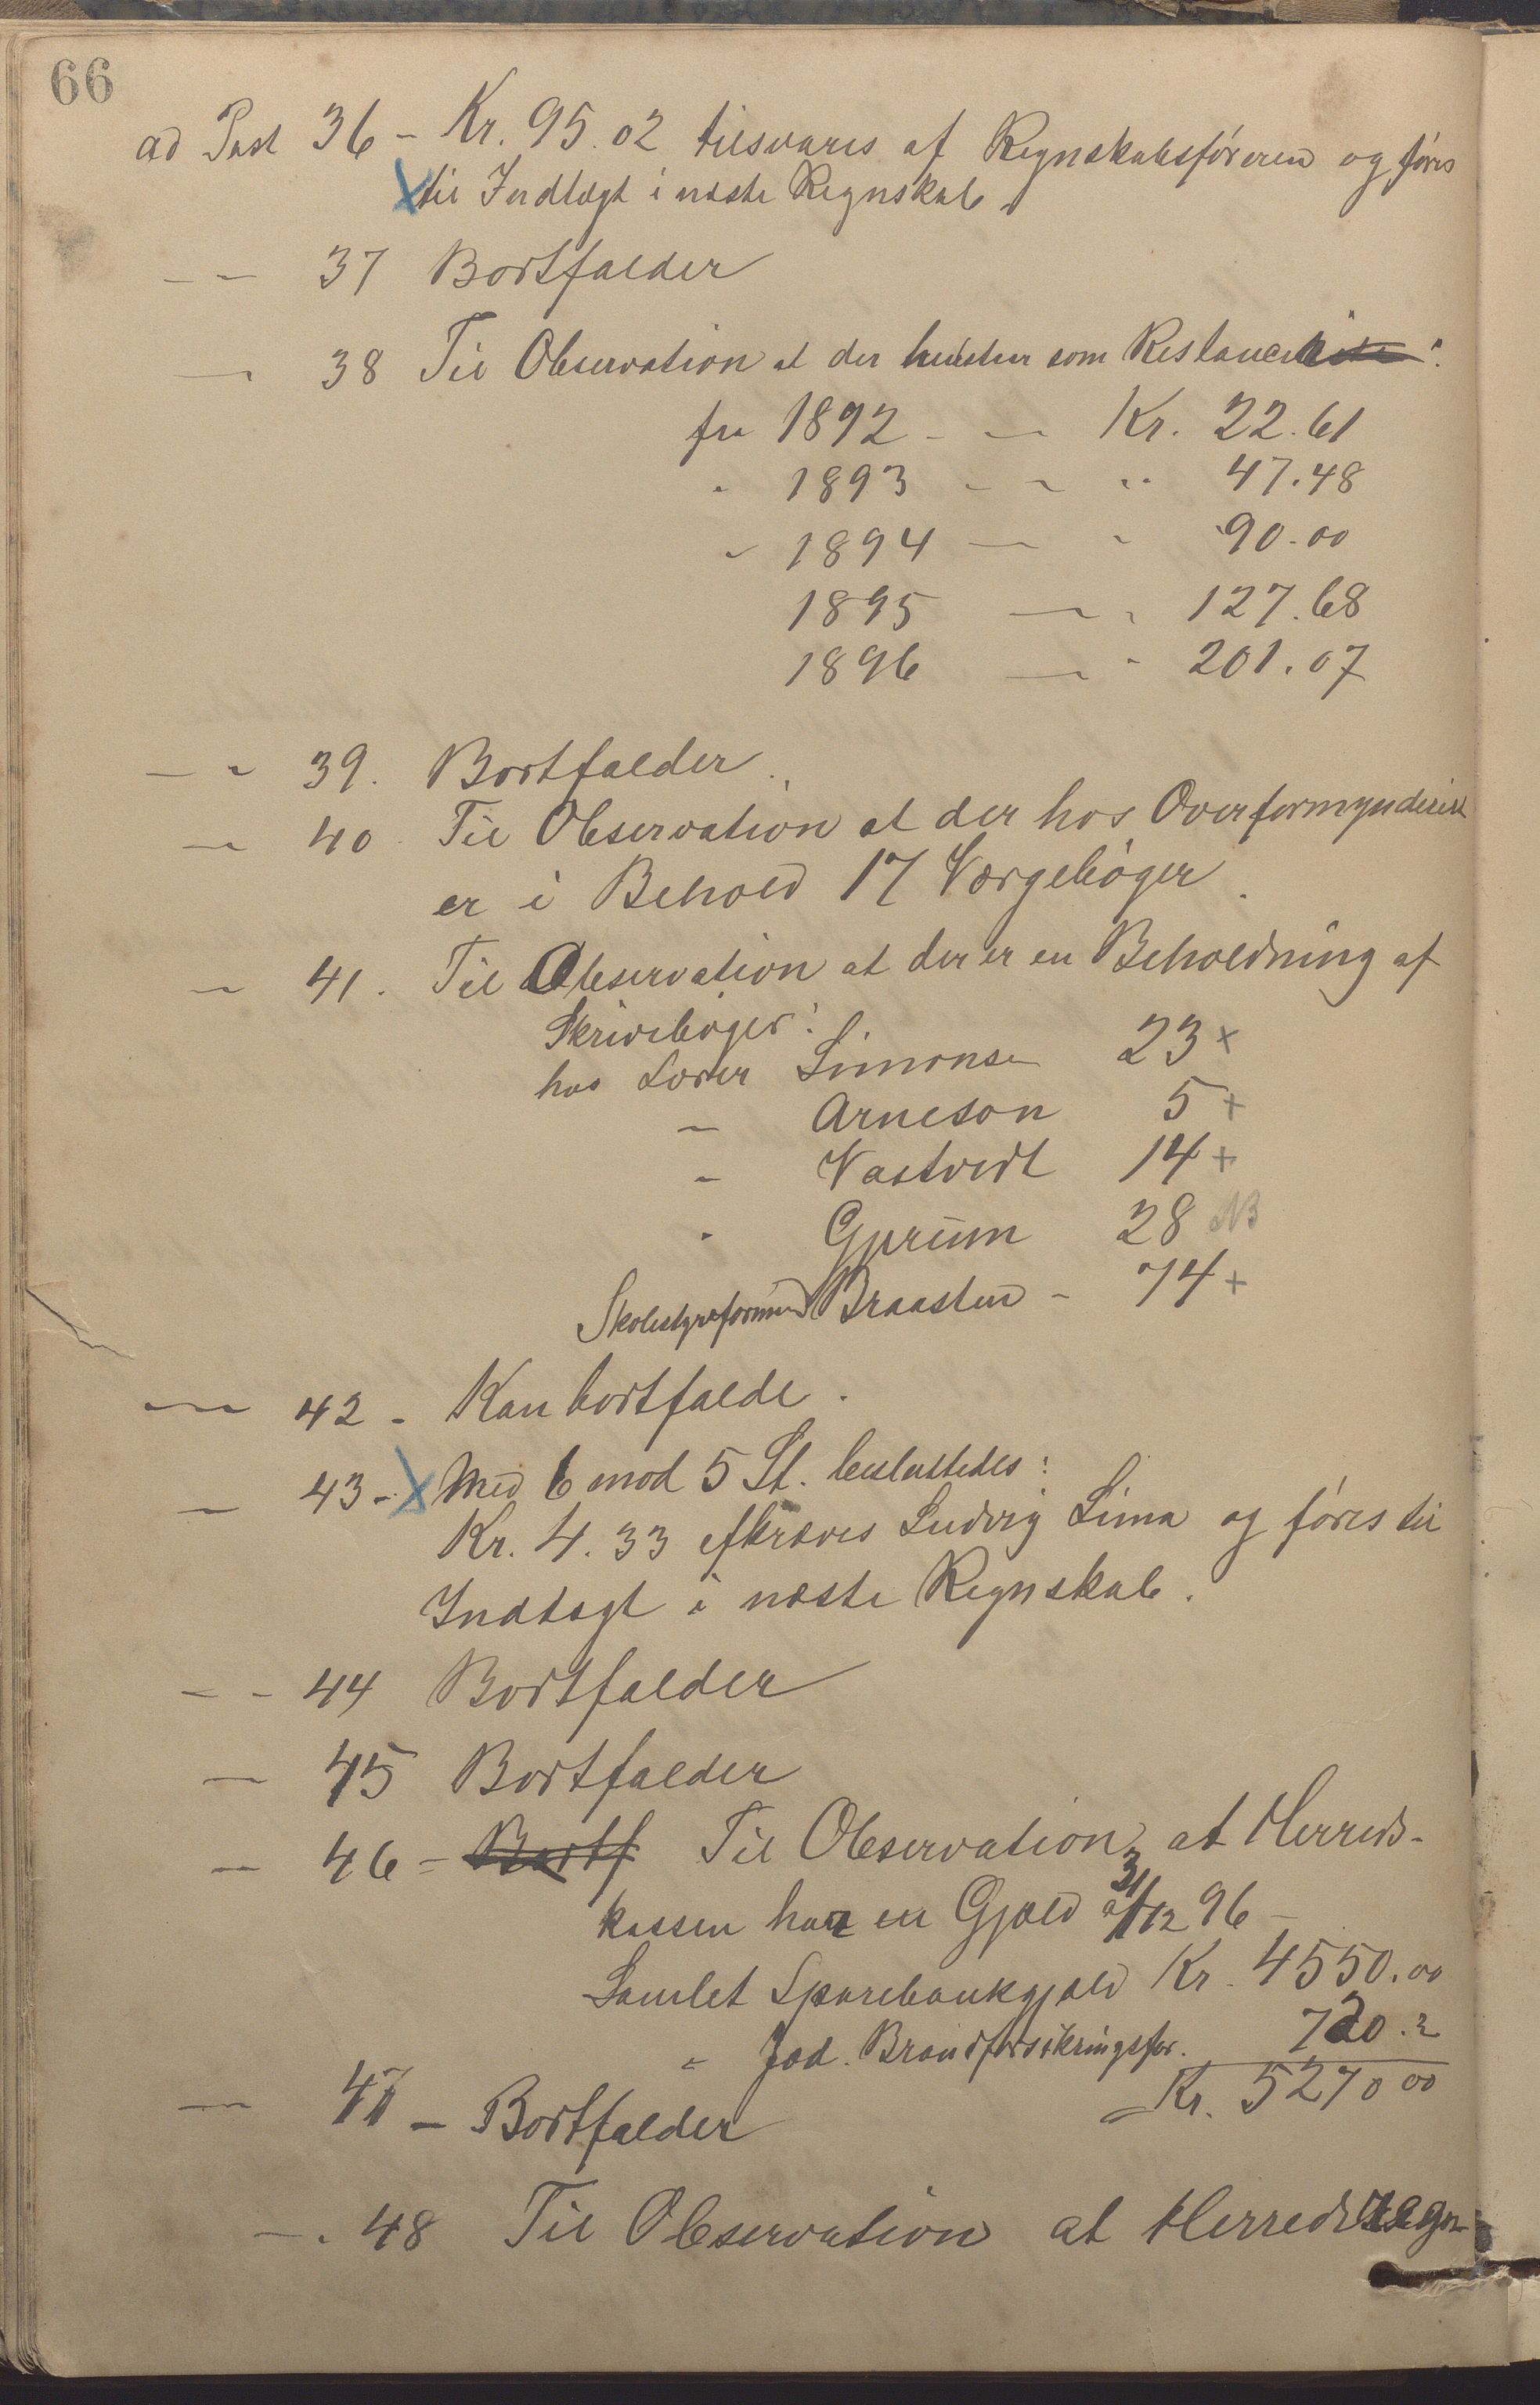 66
ad Post 36 - Kr. 95.02 tilsvares af Regnskabsføreren og føres
til Indtægt i næste Regnskab.
— — 37 Bortfalder
— 38 Til Observation at der henstaar som Restancer :
fra 1892 - — Kr. 22.61
" 1893 - — " 47.48
" 1894 — " 90.00
1895 — " 127.68
1896 — " 201.07
— " 39. Bortfalder.
— 40 Til Observation at der hos Overformynderiet
er i Behold 17 Værgebøger.
— 41. Til Observation at der er en Beholdning af
Skrivebøger:
hos Lærer Simonsen 23 x
— Arneson 5 +
- Vastvedt 14 +
" Gjerum 28 NB
Skolestyreformand Braasten - 74 +
— 42 - Kan bortfalde.
— 43 - Med 6 mod 5 St. besluttedes:
Kr. 4.33 efkræves Ludvig Lima og føres til
Indtægt i næste Regnskab.
— - 44 Bortfalder
— 45 Bortfalder
— 46 = Bortf Til Observation, at Herreds-
kassen har en Gjæld 31/12 96 -
Samlet Sparebankgjæld Kr. 4550.00
" Jæd. Brandforsikringsfor. 720."
= Kr. 5270 00
— 47 - Bortfalder
— . 48 Til Observation at Herredsregn-